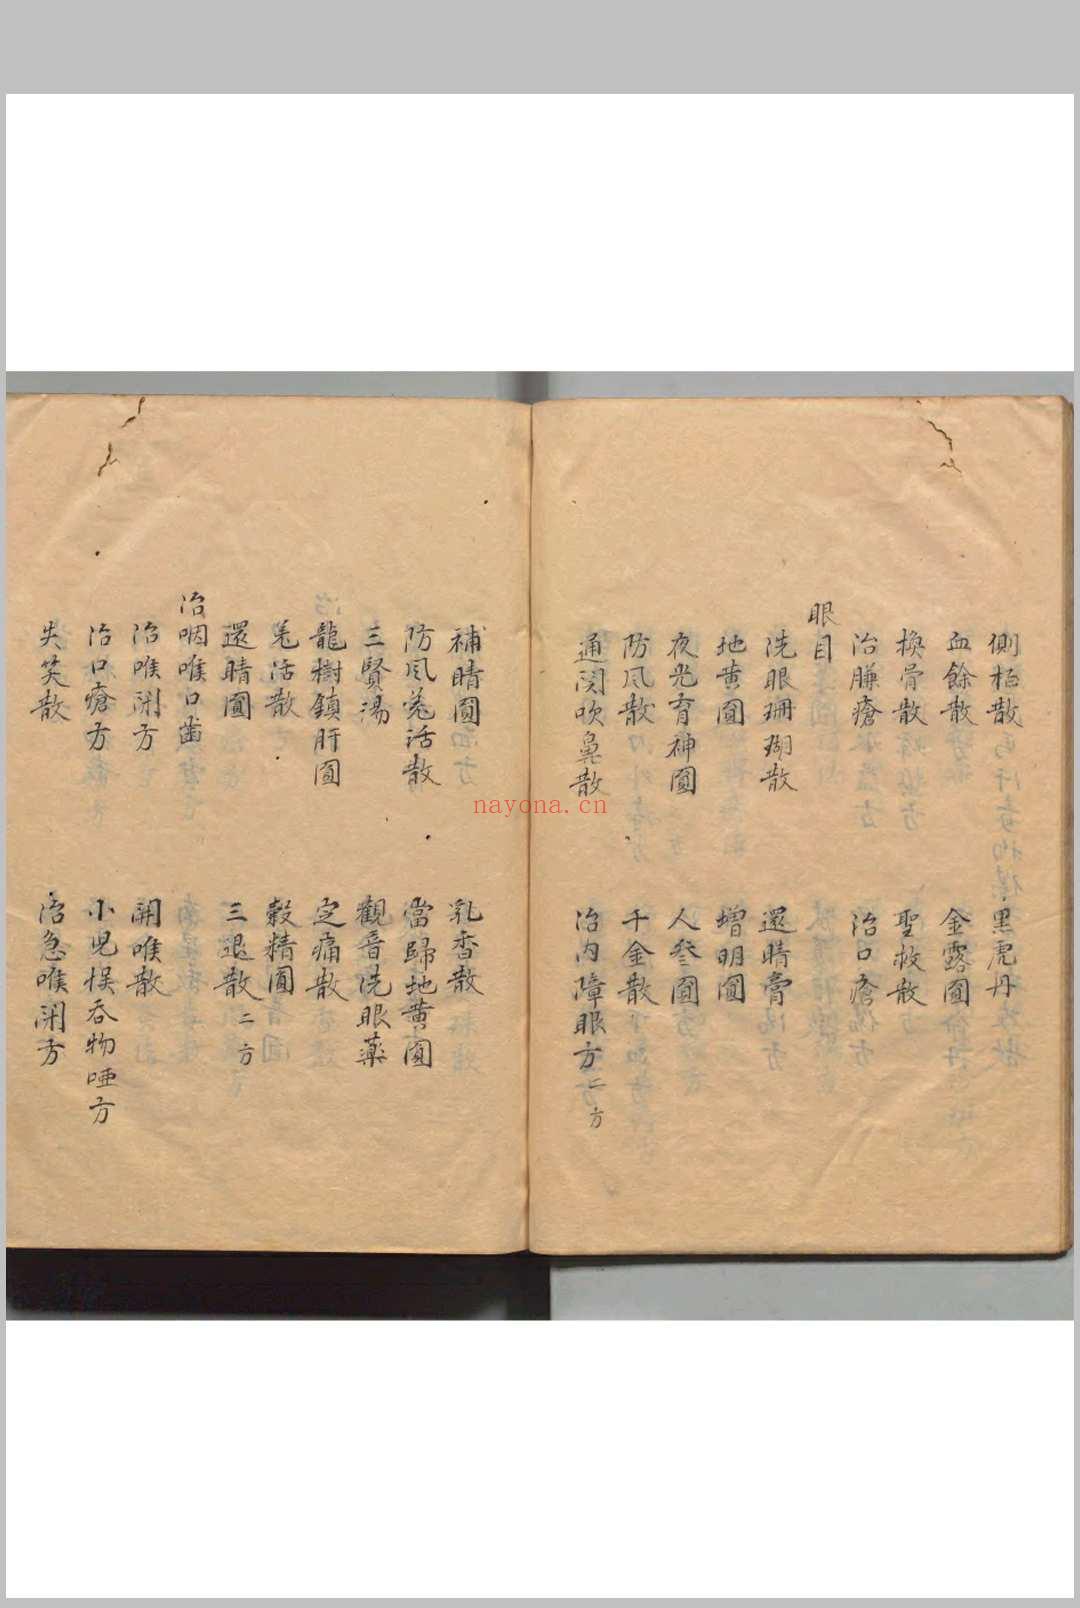 側栢散 黑虎丹
血餘散 金露圎
換骨散 聖救散
治臁瘡 治口瘡
眼目
洗眼珊瑚散 還睛膏
地黄圎 增明圎
夜光育神圎 人參圎
防风散 千金散
通関吹鼻散 治内障眼方二方
補睛圎 乳香散
防风羌活散 當歸地黄圎
三賢湯 觀音洗眼藥
龍樹鎮肝圎 定痛散
羌活散 穀精圎
還睛圎 三退散二方
治咽喉口歯
治喉閉方 開喉散
治口瘡方 小児悮吞物哑方
失笑散 治急喉閉方
nayona.cn